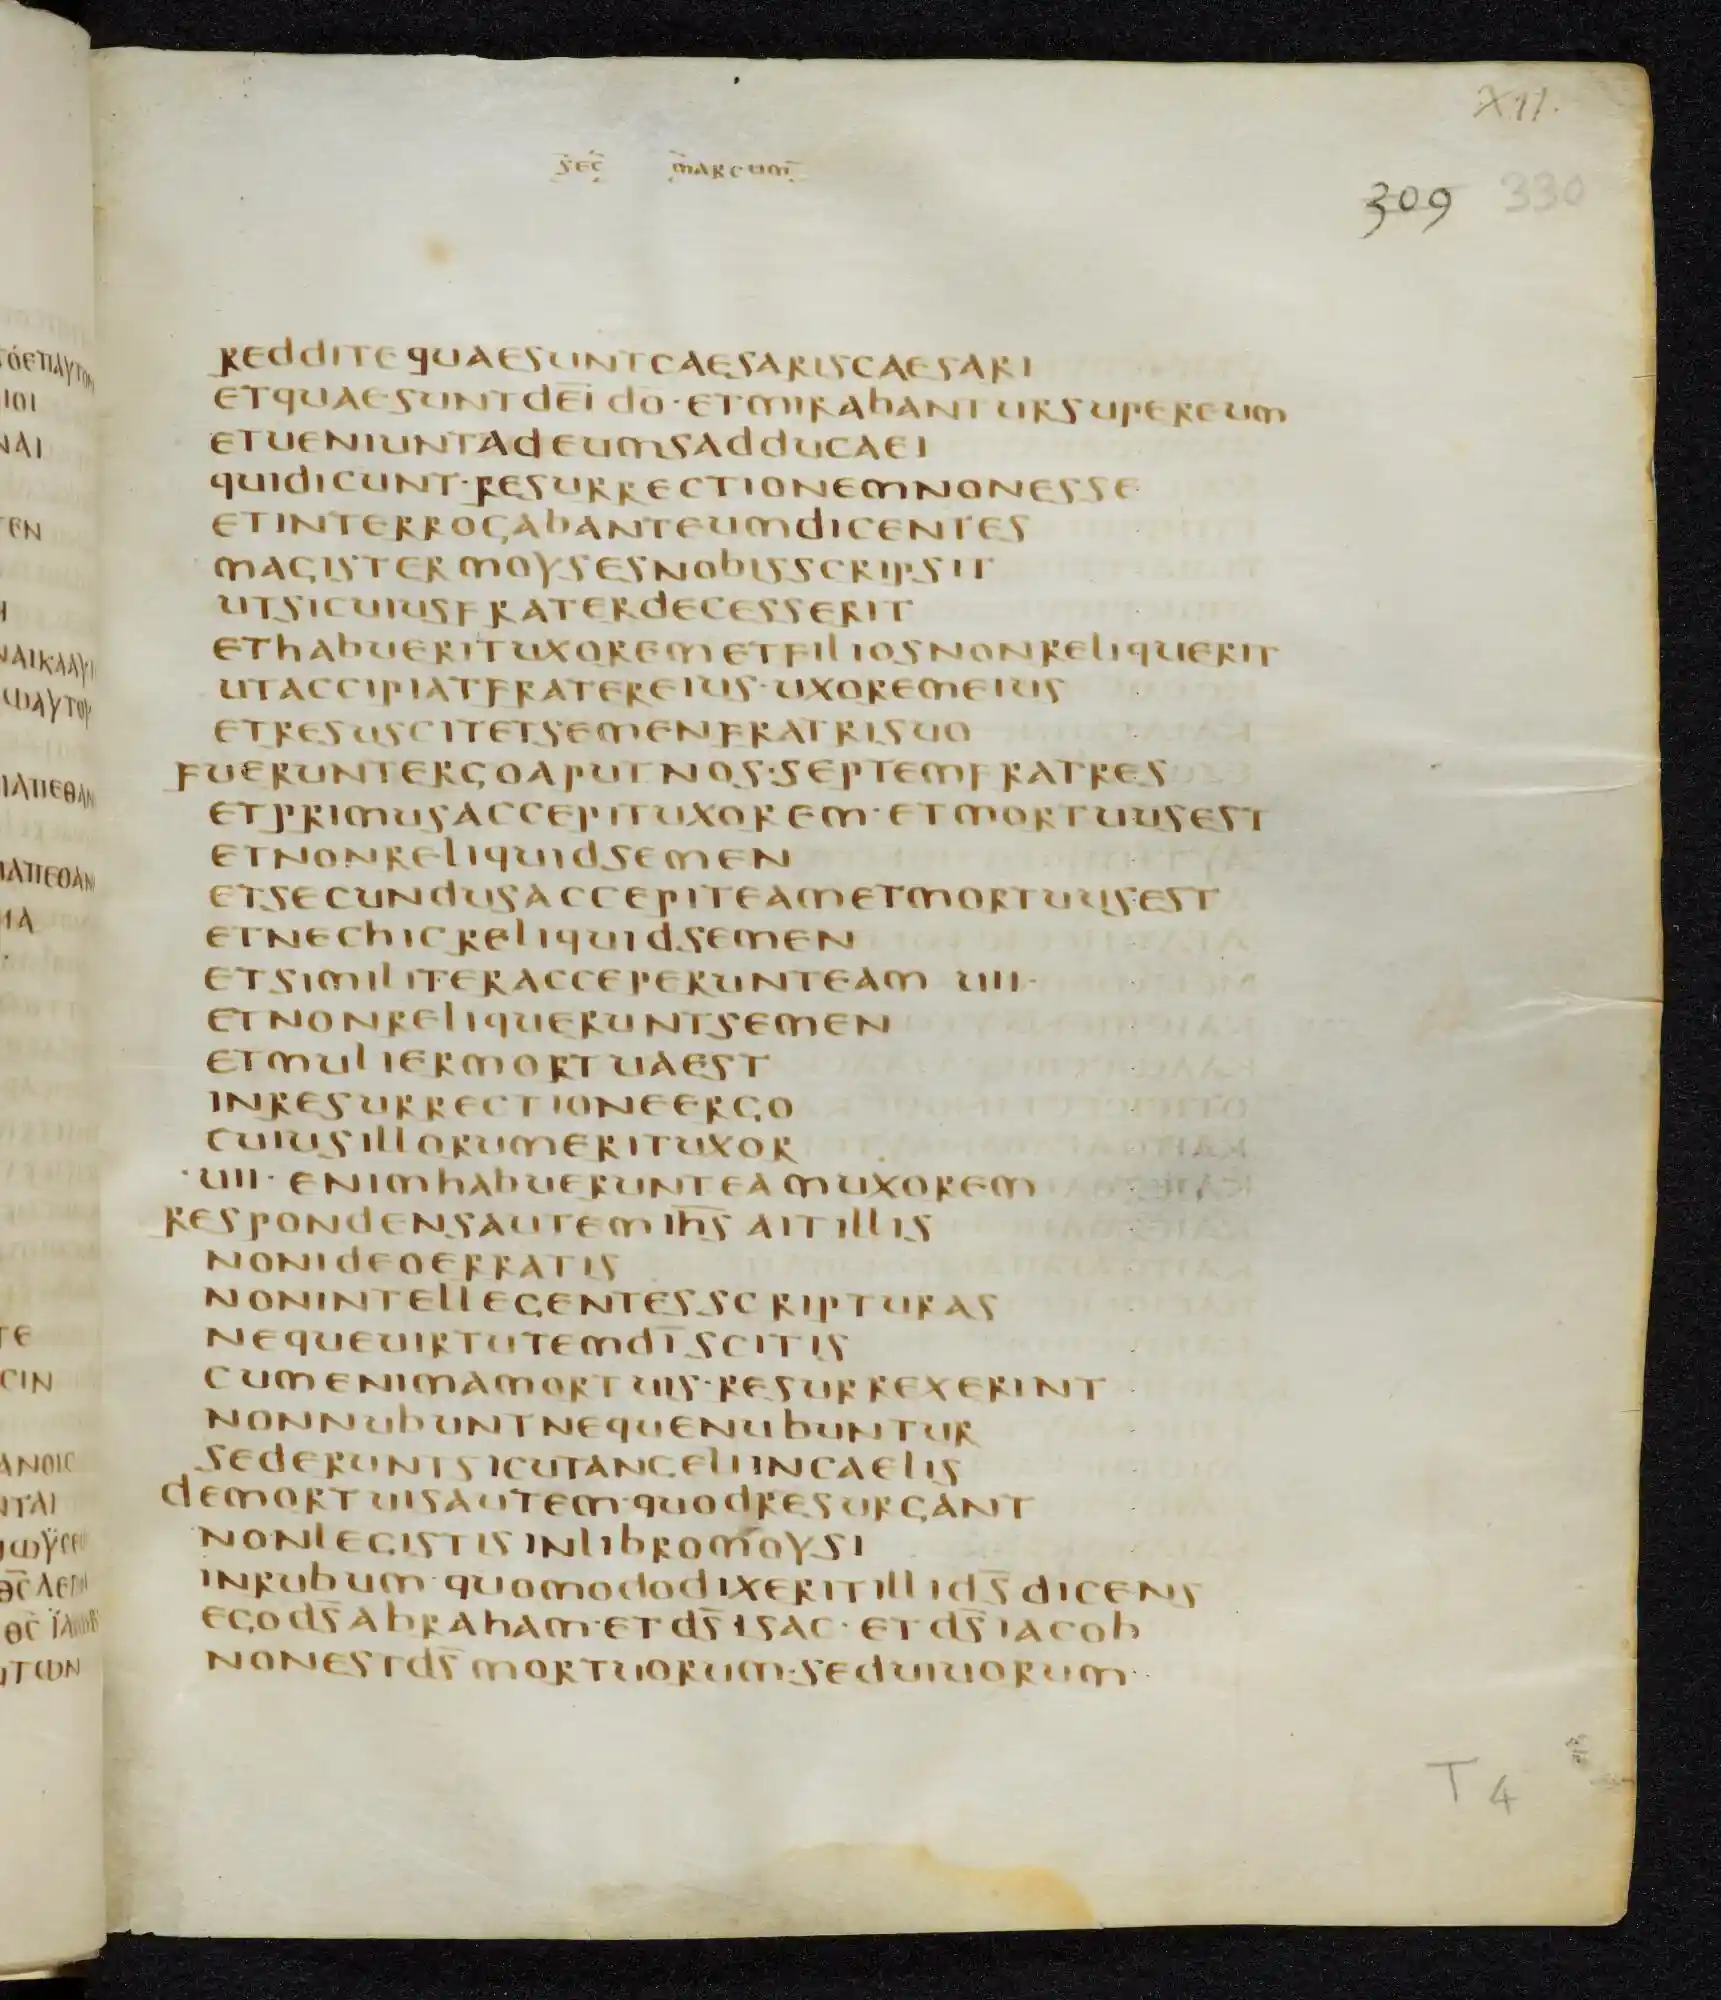 XII.
sec marcum
309 330
redditequaesuntcaesariscaesari
etquaesuntdēi dō·etmirabantursupereum
etueniuntadeumsadducaei
quidicunt·resurrectionemnonesse
etinterrogabanteumdicentes
magistermoysesnobisscripsit
utsicuiusfraterdecesserit
ethabuerituxoremetfiliosnonreliquerit
utaccipiatfratereius·uxoremeius
etresuscitetsemenfratrisuo
fueruntergoaputnos·septemfratres
etprimusaccepituxorem·etmortuusest
etnonreliquidsemen
etsecundusaccepiteametmortuus·est
etnechicreliquidsemen
etsimiliteracceperunteam uiii·
etnonreliqueruntsemen
etmuliermortuaest
inresurrectioneergo
cuiusillorumerituxor
·uiii·enimhabuerunteamuxorem
respondensautemih̄s aitillis
nonideoerratis
nonintellegentesscripturas
nequeuirtutemdī scitis
cumenimamortuis·resurrexerint
nonnubuntnequenubuntur
sederuntsicutangeliincaelis
demortuisautem·quodresurgant
nonlegistisinlibromoysi
inrubum·quomododixeritillids̄ dicens
egods̄abraham·etds̄isac·etds̄iacob
nonestds̄mortuorum·seduiuorum·
T 4